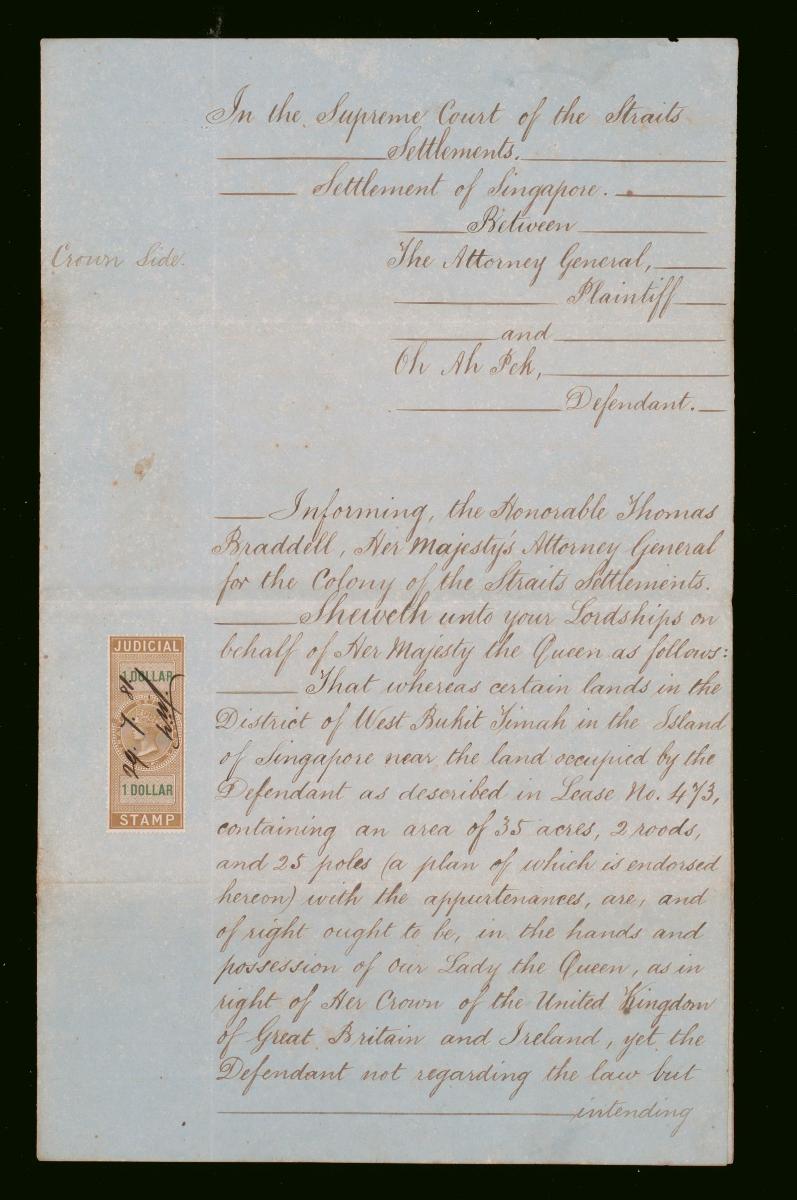 In the Supreme Court of the Straits
Settlements.
Settlement of Singapore.
Between
Crown Side.
The Attorney General,
Plaintiff
and
Oh Ah Pek,
Defendant.
Informing, the Honorable Thomas
Braddell, Her Majesty's Attorney General
for the Colony of the Straits Settlements.
Sheweth unto your Lordships on
behalf of Her Majesty the Queen as follows:
That whereas certain lands in the
District of West Bukit Timah in the Island
of Singapore near the land occupied by the
Defendant as described in Lease No. 473,
containing an area of 35 acres, 2 roods,
and 25 poles (a plan of which is endorsed
hereon) with the appurtenances, are, and
of right ought to be, in the hands and
possession of Our Lady the Queen, as in
right of Her Crown of the United Kingdom
of Great Britain and Ireland, yet the
Defendant not regarding the law but
intending
JUDICIAL
1 DOLLAR
1 DOLLAR
STAMP